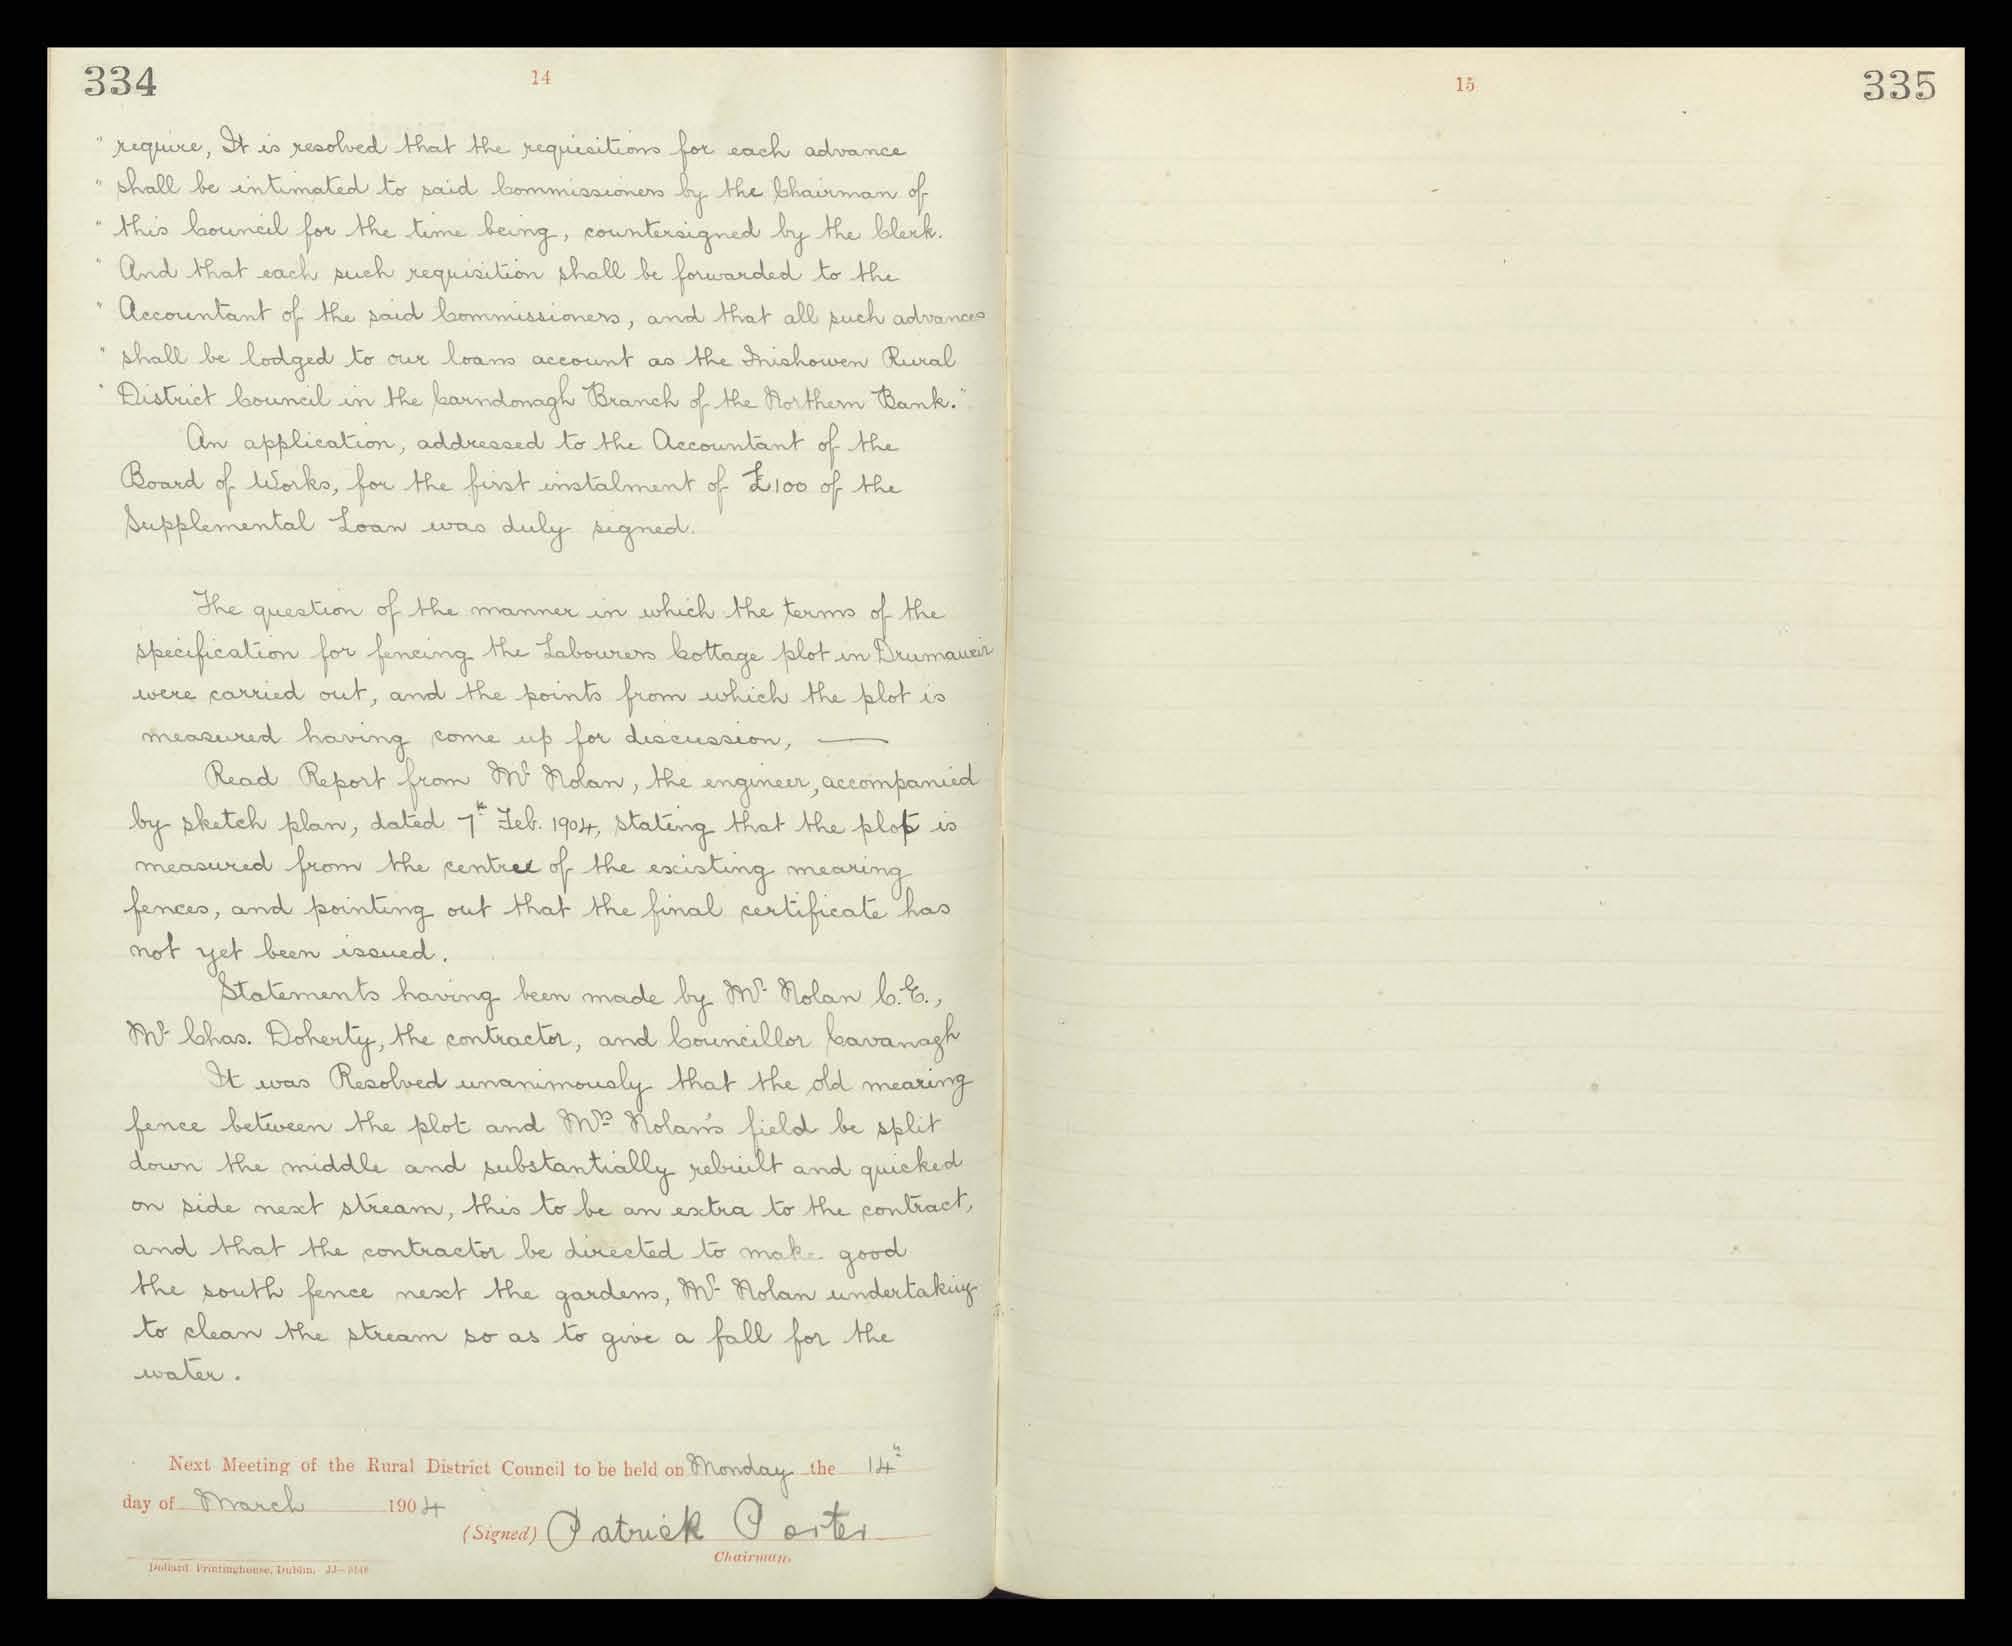 334
14
" require, It is resolved that the requisitions for each advance
" shall be intimated to said Commissioners by the Chairman of
" this Council for the time being, countersigned by the Clerk.
" And that each such requisition shall be forwarded to the
" Accountant of the said Commissioners, and that all such advances
" shall be lodged to our loans account as the Inishowen Rural
" District Council in the Carndonagh Branch of the Northern Bank."
An application, addressed to the Accountant of the
Board of Works, for the first instalment of £100 of the
Supplemental Loan was duly signed.
The question of the manner in which the terms of the
specification for fencing the Labourers Cottage plot in Drumaweir
were carried out, and the points from which the plot is
measured having come up for discussion, —
Read Report from Mr Nolan, the engineer, accompanied
by sketch plan, dated 7th Feb. 1904, stating that the plot is
measured from the centre of the existing mearing
fences, and pointing out that the final certificate has
not yet been issued.
Statements having been made by Mr Nolan C.E.,
Mr Chas. Doherty, the contractor, and Councillor Cavanagh
It was Resolved unanimously that the old mearing
fence between the plot and Mrs Nolan's field be split
down the middle and substantially rebuilt and quicked
on side next stream, this to be an extra to the contract,
and that the contractor be directed to make good
the south fence next the gardens, Mr Nolan undertaking
to clean the stream so as to give a fall for the
water.
Next Meeting of the Rural District Council to be held on Monday the 14th
day of March 1904
(Signed) Patrick Porter
Chairman.
Dollard Printinghouse, Dublin.
15
335